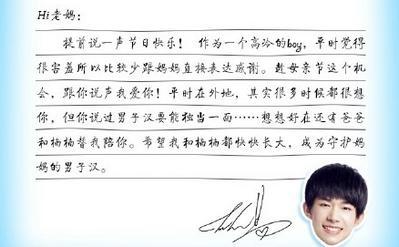 Hi老妈:
提前说一声节日快乐! 作为一个高冷的boy, 平时觉得
很害羞所以比较少跟妈妈直接表达感谢。趁母亲节这个机
会, 跟你说声我爱你! 平时在外地, 其实很多时候都很想
你, 但你说过男子汉要能独当一面……想想好在还有爸爸
和楠楠替我陪你。希望我和楠楠都快快长大, 成为守护妈
妈的男子汉。